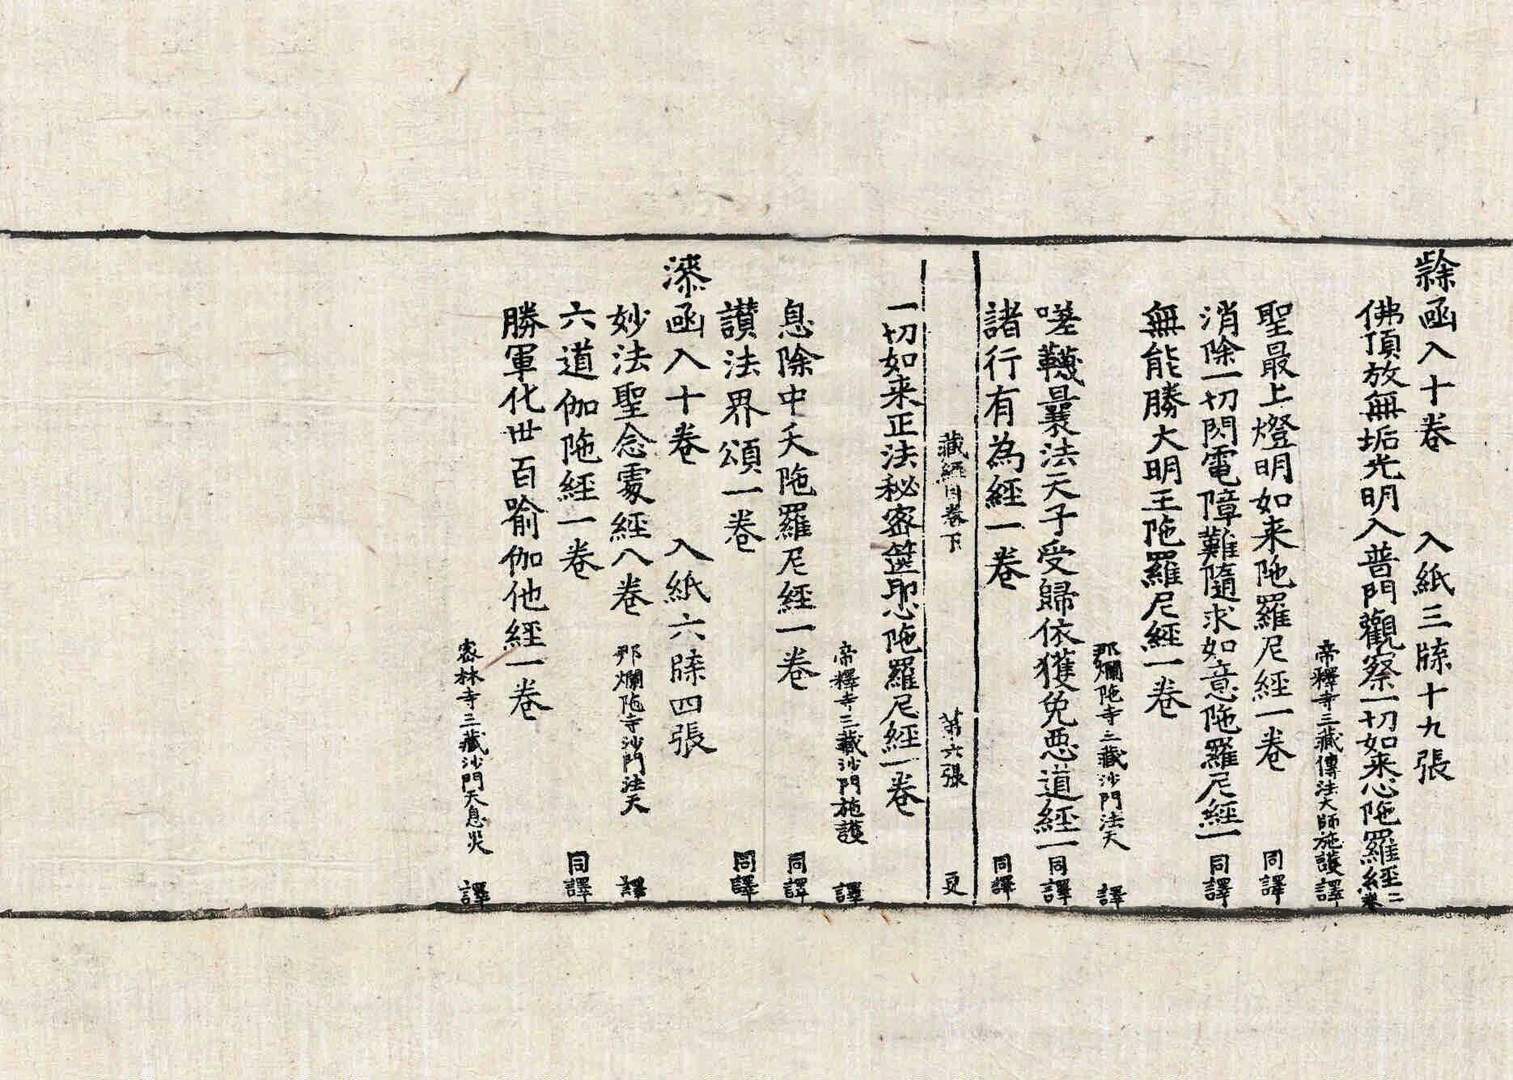 函入十卷　入紙三牒十九張
佛頂放無垢光明入普門觀察一切如来心陁羅經二卷
帝釋寺三藏傳法大師施護譯
聖最上燈明如来陁羅尼經一卷　同譯
消除一切閃電障難隨求如意陁羅尼經一　同譯
無能勝大明王陁羅尼經一卷
那爛陁寺三藏沙門法天　譯
嗟韈曩法天子受歸依獲免惡道經一　同譯
諸行有為經一卷　同譯
藏經目卷下　第六張　更
一切如来正法秘密篋印心陁羅尼經一卷
帝釋寺三藏沙門施護　譯
息除中夭陁羅尼經一卷　同譯
讃法界頌一卷　同譯
漆函入十卷　入紙六牒四張
妙法聖念處經八卷　那爛陁寺沙門法天　譯
六道伽陁經一卷　同譯
勝軍化世百喻伽他經一卷
密林寺三藏沙門天息災　譯